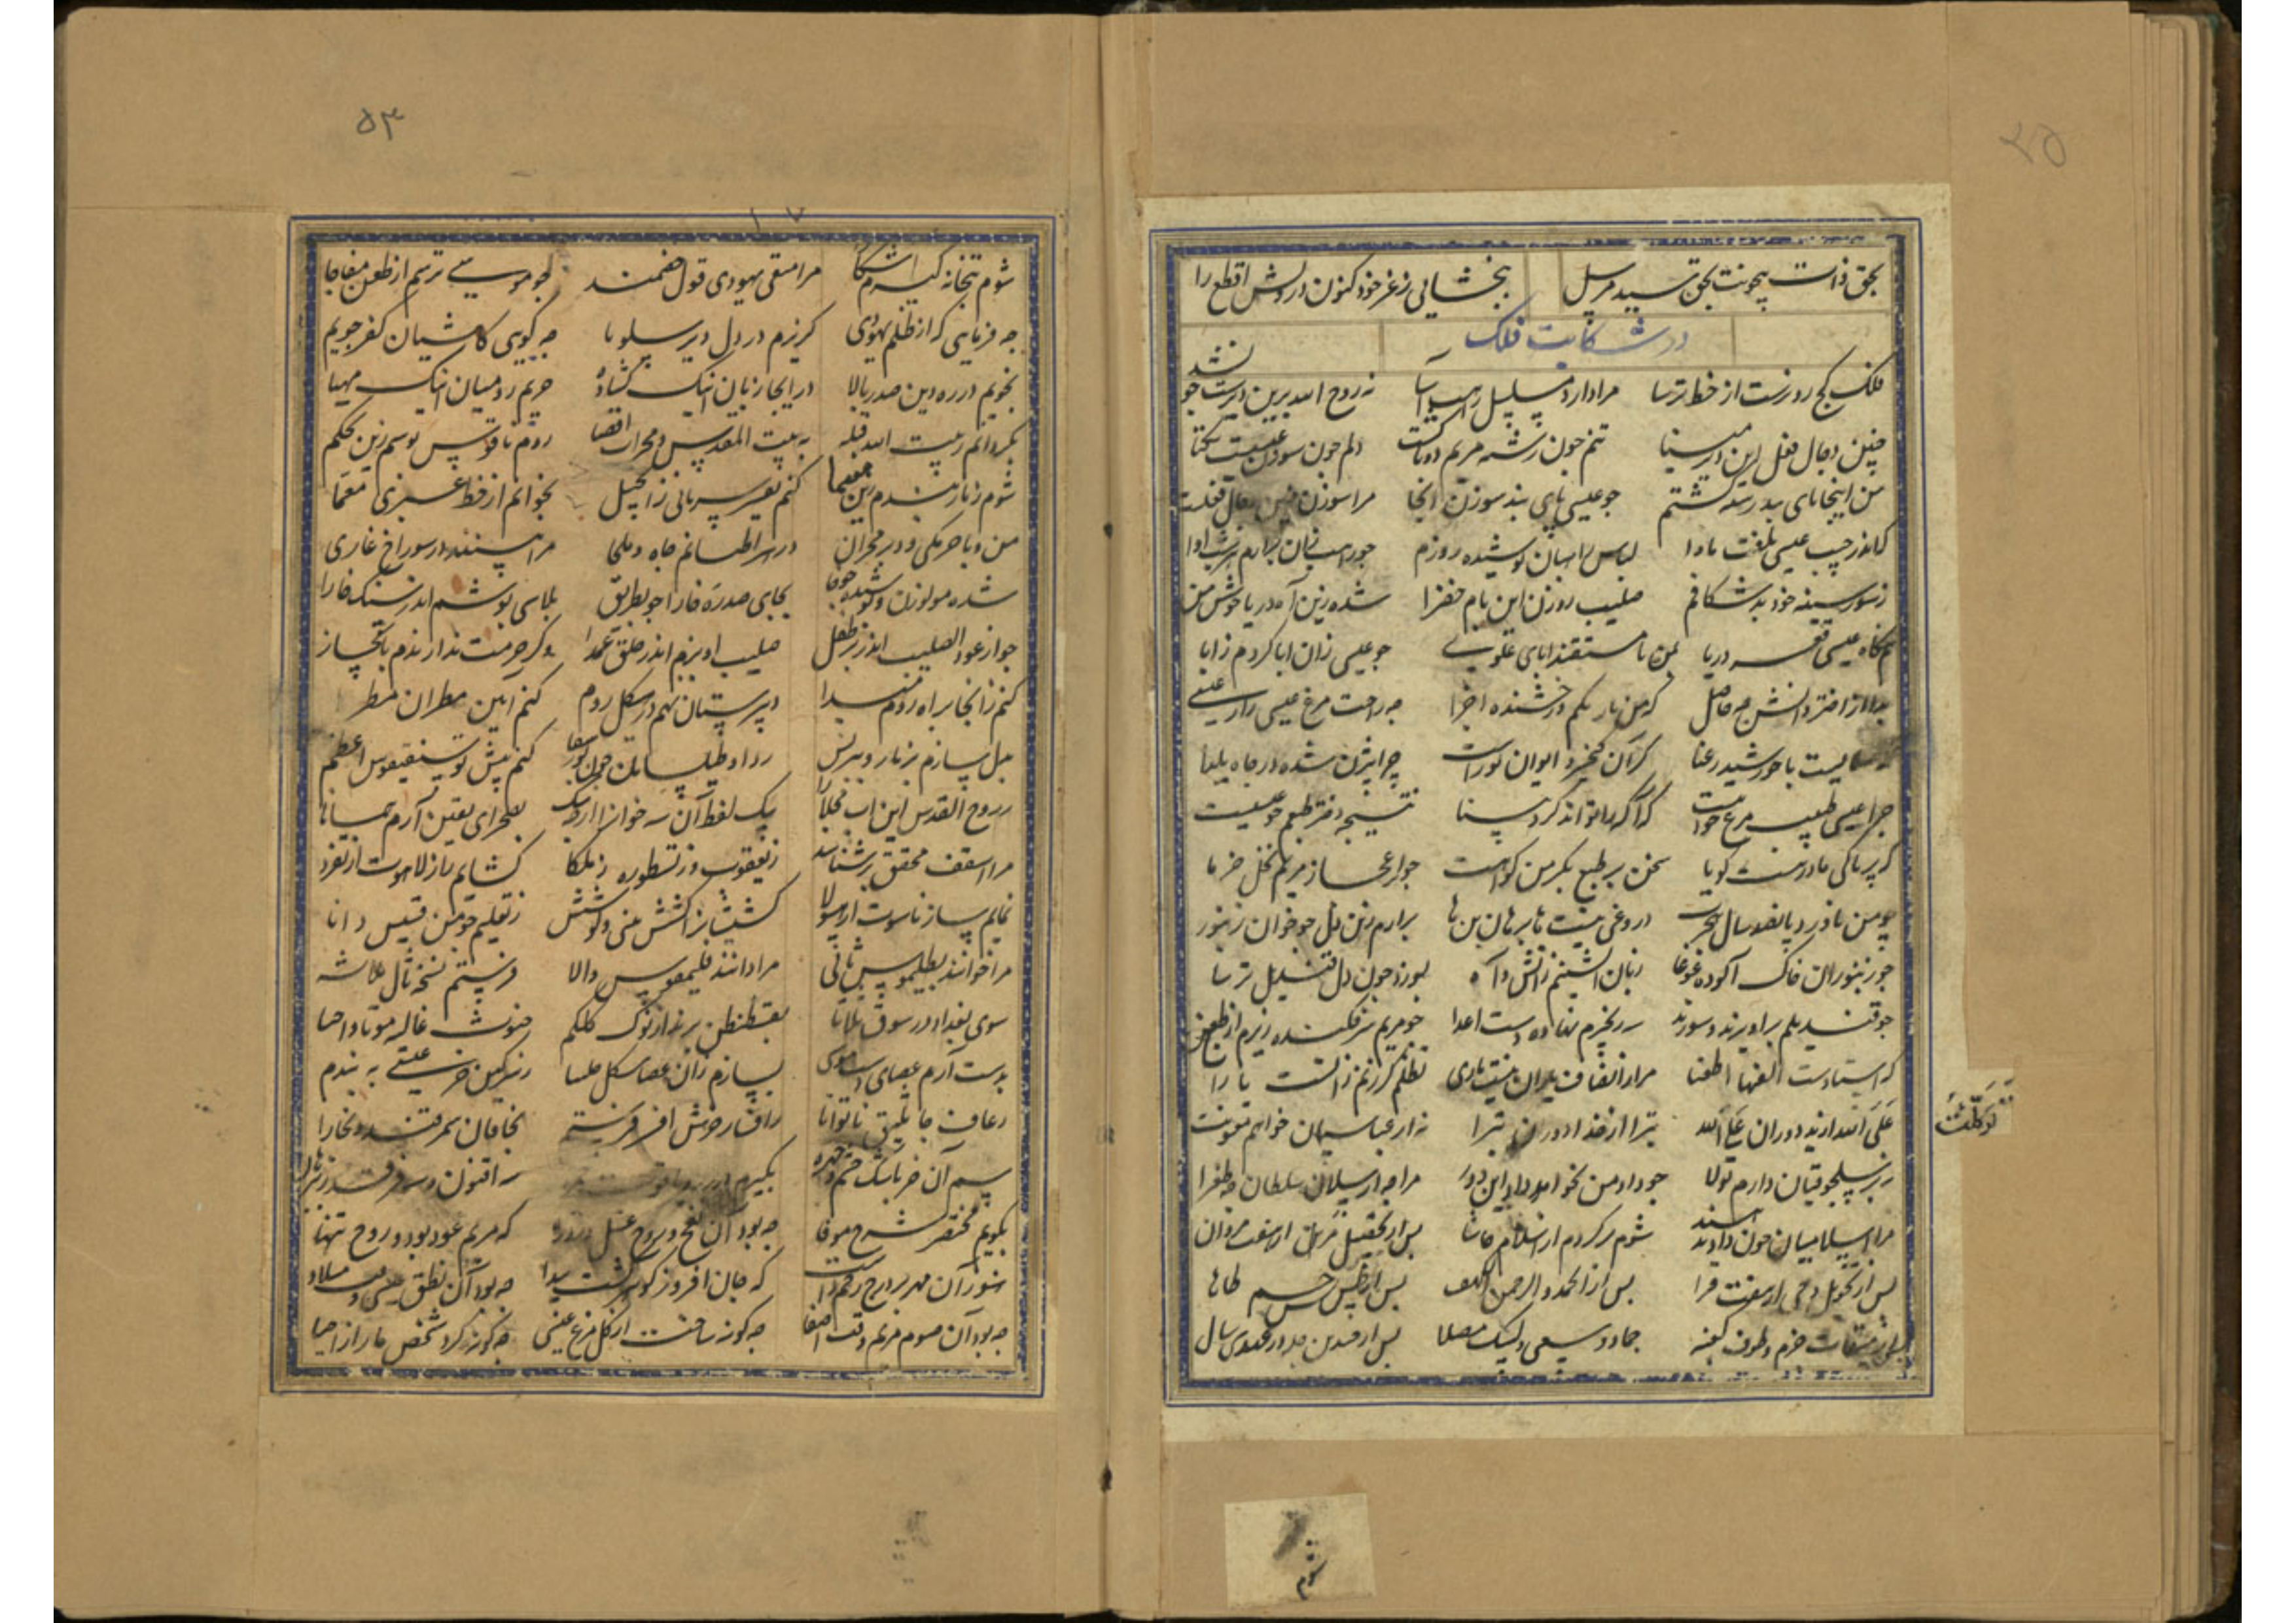 بحق ذات بیچونت بحق سید مرسل ببخشایی ز عز خود کنون درویش اقطع را
در شکایت فلک
فلک کج روترست از خط ترسا مرا دارد مسلسل راهب آسا نه روح الله برین دیرست چون شد
چنین دجال فعل این دیر مینا تنم چون رشته مریم دوتاست دلم چون سوزن عیسیست یکتا
من اینجا پای بند رشته گشتم چو عیسی پای بند سوزن آنجا مرا سوزن چنین دجال فعلست
که اندر جیب عیسی یافت ماوا لباس راهبان پوشیده روزم چو راهب زان برآرم هر شب آوا
ز سوز سینه خود بر شکافم صلیب روزن این بام خضرا شده زین آه دریا جوش من
تیممگاه عیسی قعر دریا بمن نامشفقند آبای علوی چو عیسی زان ابا کردم ز آبا
مرا از اختر دانش چه حاصل که من تاریکم او رخشنده اجزا چه راحت مرغ عیسی را ز عیسی
که همسایست با خورشید رعنا گر آن کیخسرو ایوان نورست چرا بیژن شده در چاه یلدا
چرا عیسی طبیب مرغ خود نیست که اکمه را تواند کرد بینا نتیجه دختر طبعم چو عیسیست
که بر پاکی مادر هست گویا سخن بر طبع بکر من گواهست چو اعجاز مریم نخل خرما
چو من ناورد پانصد سال هجرت دروغی نیست ها برهان من ها برآرم زین دل چو خوان زنبور
چو زنبوران خاک آلوده غوغا زبان آتشینم ز آتش و آه بسوزد چون دل قندیل ترسا
چو قندیلم برآویزند و سوزند سه زنجیرم نهاده دست اعدا چو مریم سرفکنده ریزم از طعن
که استادست الفهای اطعنا مرا از انصاف یاران نیست یاری تظلم کردنم زانست یارا
علی الله از بد دوران علی الله تبرا از خدا دوران تبرا نه از عباسیان خواهم معونت
توکلت
نه بر سلجوقیان دارم تولا چو داد من نخواهد داد این دور مرا چه ارسلان سلطان چه بغرا
مرا اسلامیان چون داد ندهند شوم برگردم از اسلام حاشا پس از تحصیل دین از هفت مردان
پس از تاویل وحی از هفت قرا پس از الحمد و الرحمن و الکهف پس از یاسین و طاسین میم و طاها
پس از میقات حرم و طوف کعبه جمار و سعی و لبیک مصلا پس از چندین چله در عهد سی سال
شوم
۵۳
شوم پنجاهه گیرم آشکارا مرا مشتی یهودی فعل خصمند چو عیسی ترسم از طعن مفاجا
چه فرمایی که از ظلم یهودی گریزم در دل دیر سکوبا چه گویی کاستان کفر جویم
نجویم در ره دین صدر بالا در ابخازیان اینک گشاده حریم رومیان اینک مهیا
بگردانم ز بیت الله قبله به بیت المقدس و محراب اقصا روم ناقوس بوسم زین تحکم
شوم زنار بندم زین تعدا کنم تفسیر سریانی ز انجیل بخوانم از خط عبری معما
من و ناجرمکی و دیر مخران در بقراطیانم جاه و ملجا مرا بینند در سوراخ غاری
شده مولوزن و پوشیده چوخا بجای صدره خارا چو بطریق پلاسی پوشم اندر سنگ خارا
چو از عود الصلیب اندر بر طفل صلیب آویزم اندر حلق عمدا وگر حرمت ندارندم بابخاز
کنم زانجا براه روم مبدا دبیرستان نهم در هیکل روم کنم آیین مطران مطرا
بدل سازم بزنار و ببرنس ردا و طیلسان چون پور سقا کنم پیش طرسیقوس اعظم
ز روح القدس و ابن و اب مجارا بیک لفظ آن سه خوان را از چه شک بصحرای یقین آرم همانا
مرا اسقف محقق تر شناسد ز یعقوب و ز نسطور و ز ملکا گشایم راز لاهوت از تفرد
نمایم ساز ناسوت از هیولا کشیشان را کشش بینی و کوشش ز تعلیم چو من قسیس دانا
مرا خوانند بطلمیوس ثانی مرا دانند فیلاقوس والا فرستم نسخه ثالث ثلاثه
سوی بغداد در سوق ثلاثا بقسطنطین برند از نوک کلکم حنوط و غالیه موتی و احیا
بدست آرم عصای دست موسی بسازم زان عصا شکل چلیپا ز سرگین خر عیسی ببندم
رعاف جاثلیق ناتوانا ز افسار خرش افسر فرستم بخاقان سمرقند و بخارا
سم آن خر باشک چشم و چهره بگیرم در زر و یاقوت حمرا سه اقنوم و سه قرقف را ببرهان
بگویم مختصر شرح موفا چه بود آن نفخ روح و غسل و روزه که مریم عور بود و روح تنها
هنوز آن مهر بر درج رحم داشت که جان افروز گوهر گشت پیدا چه بود آن نطق عیسی وقت میلاد
چه بود آن صوم مریم وقت اصغا چگونه ساخت از گل مرغ عیسی چگونه کرد شخص عازر احیا